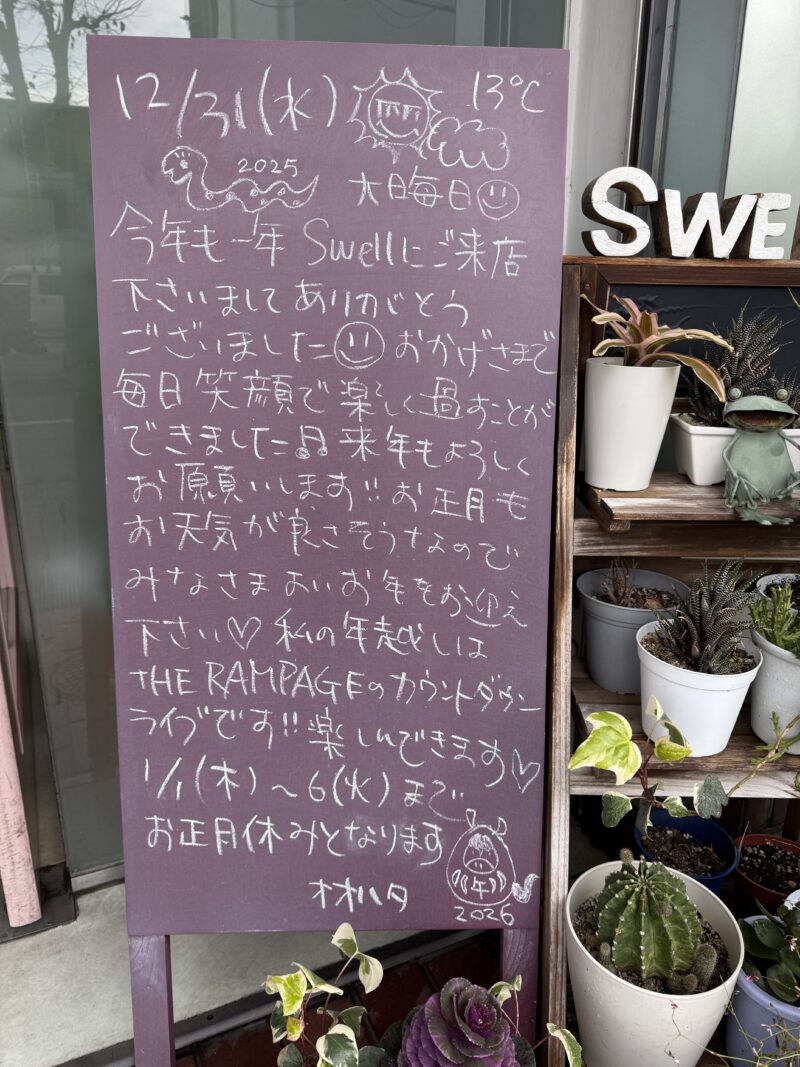 12/31(水) 13℃
2025
大晦日
今年も一年 Swellにご来店
下さいまして ありがとう
ございました おかげさまで
毎日 笑顔で 楽しく過すことが
できました♫ 来年もよろしく
お願いします!! お正月も
お天気が良さそうなので
みなさま よいお年をお迎え
下さい♡ 私の年越しは
THE RAMPAGEのカウントダウン
ライブです!! 楽しんできます♡
1/1(木)～6(火)まで
お正月休みとなります
オオハタ
午
2026
SWE